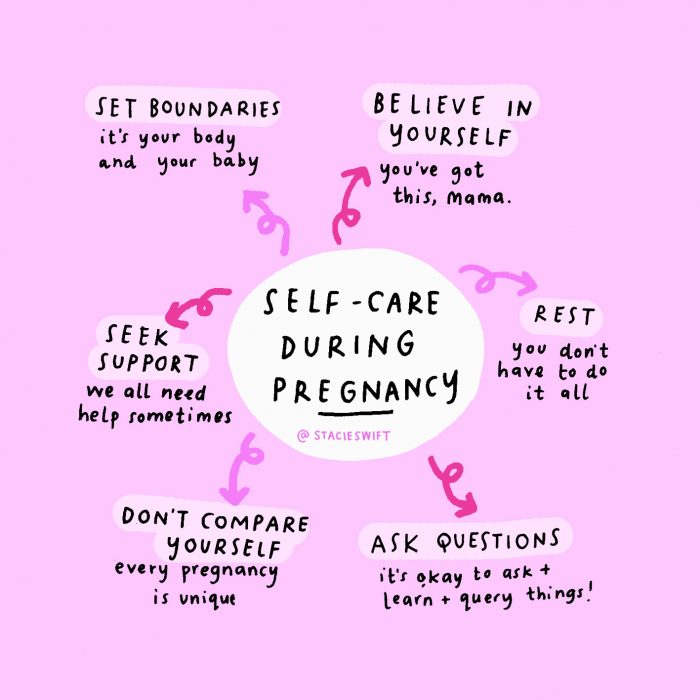 SET BOUNDARIES
it's your body
and your baby
BELIEVE IN
YOURSELF
you've got
this, mama.
SELF-CARE
DURING
PREGNANCY
@STACIESWIFT
REST
you don't
have to do
it all
SEEK
SUPPORT
we all need
help sometimes
DON'T COMPARE
YOURSELF
every pregnancy
is unique
ASK QUESTIONS
it's okay to ask +
learn + query things!